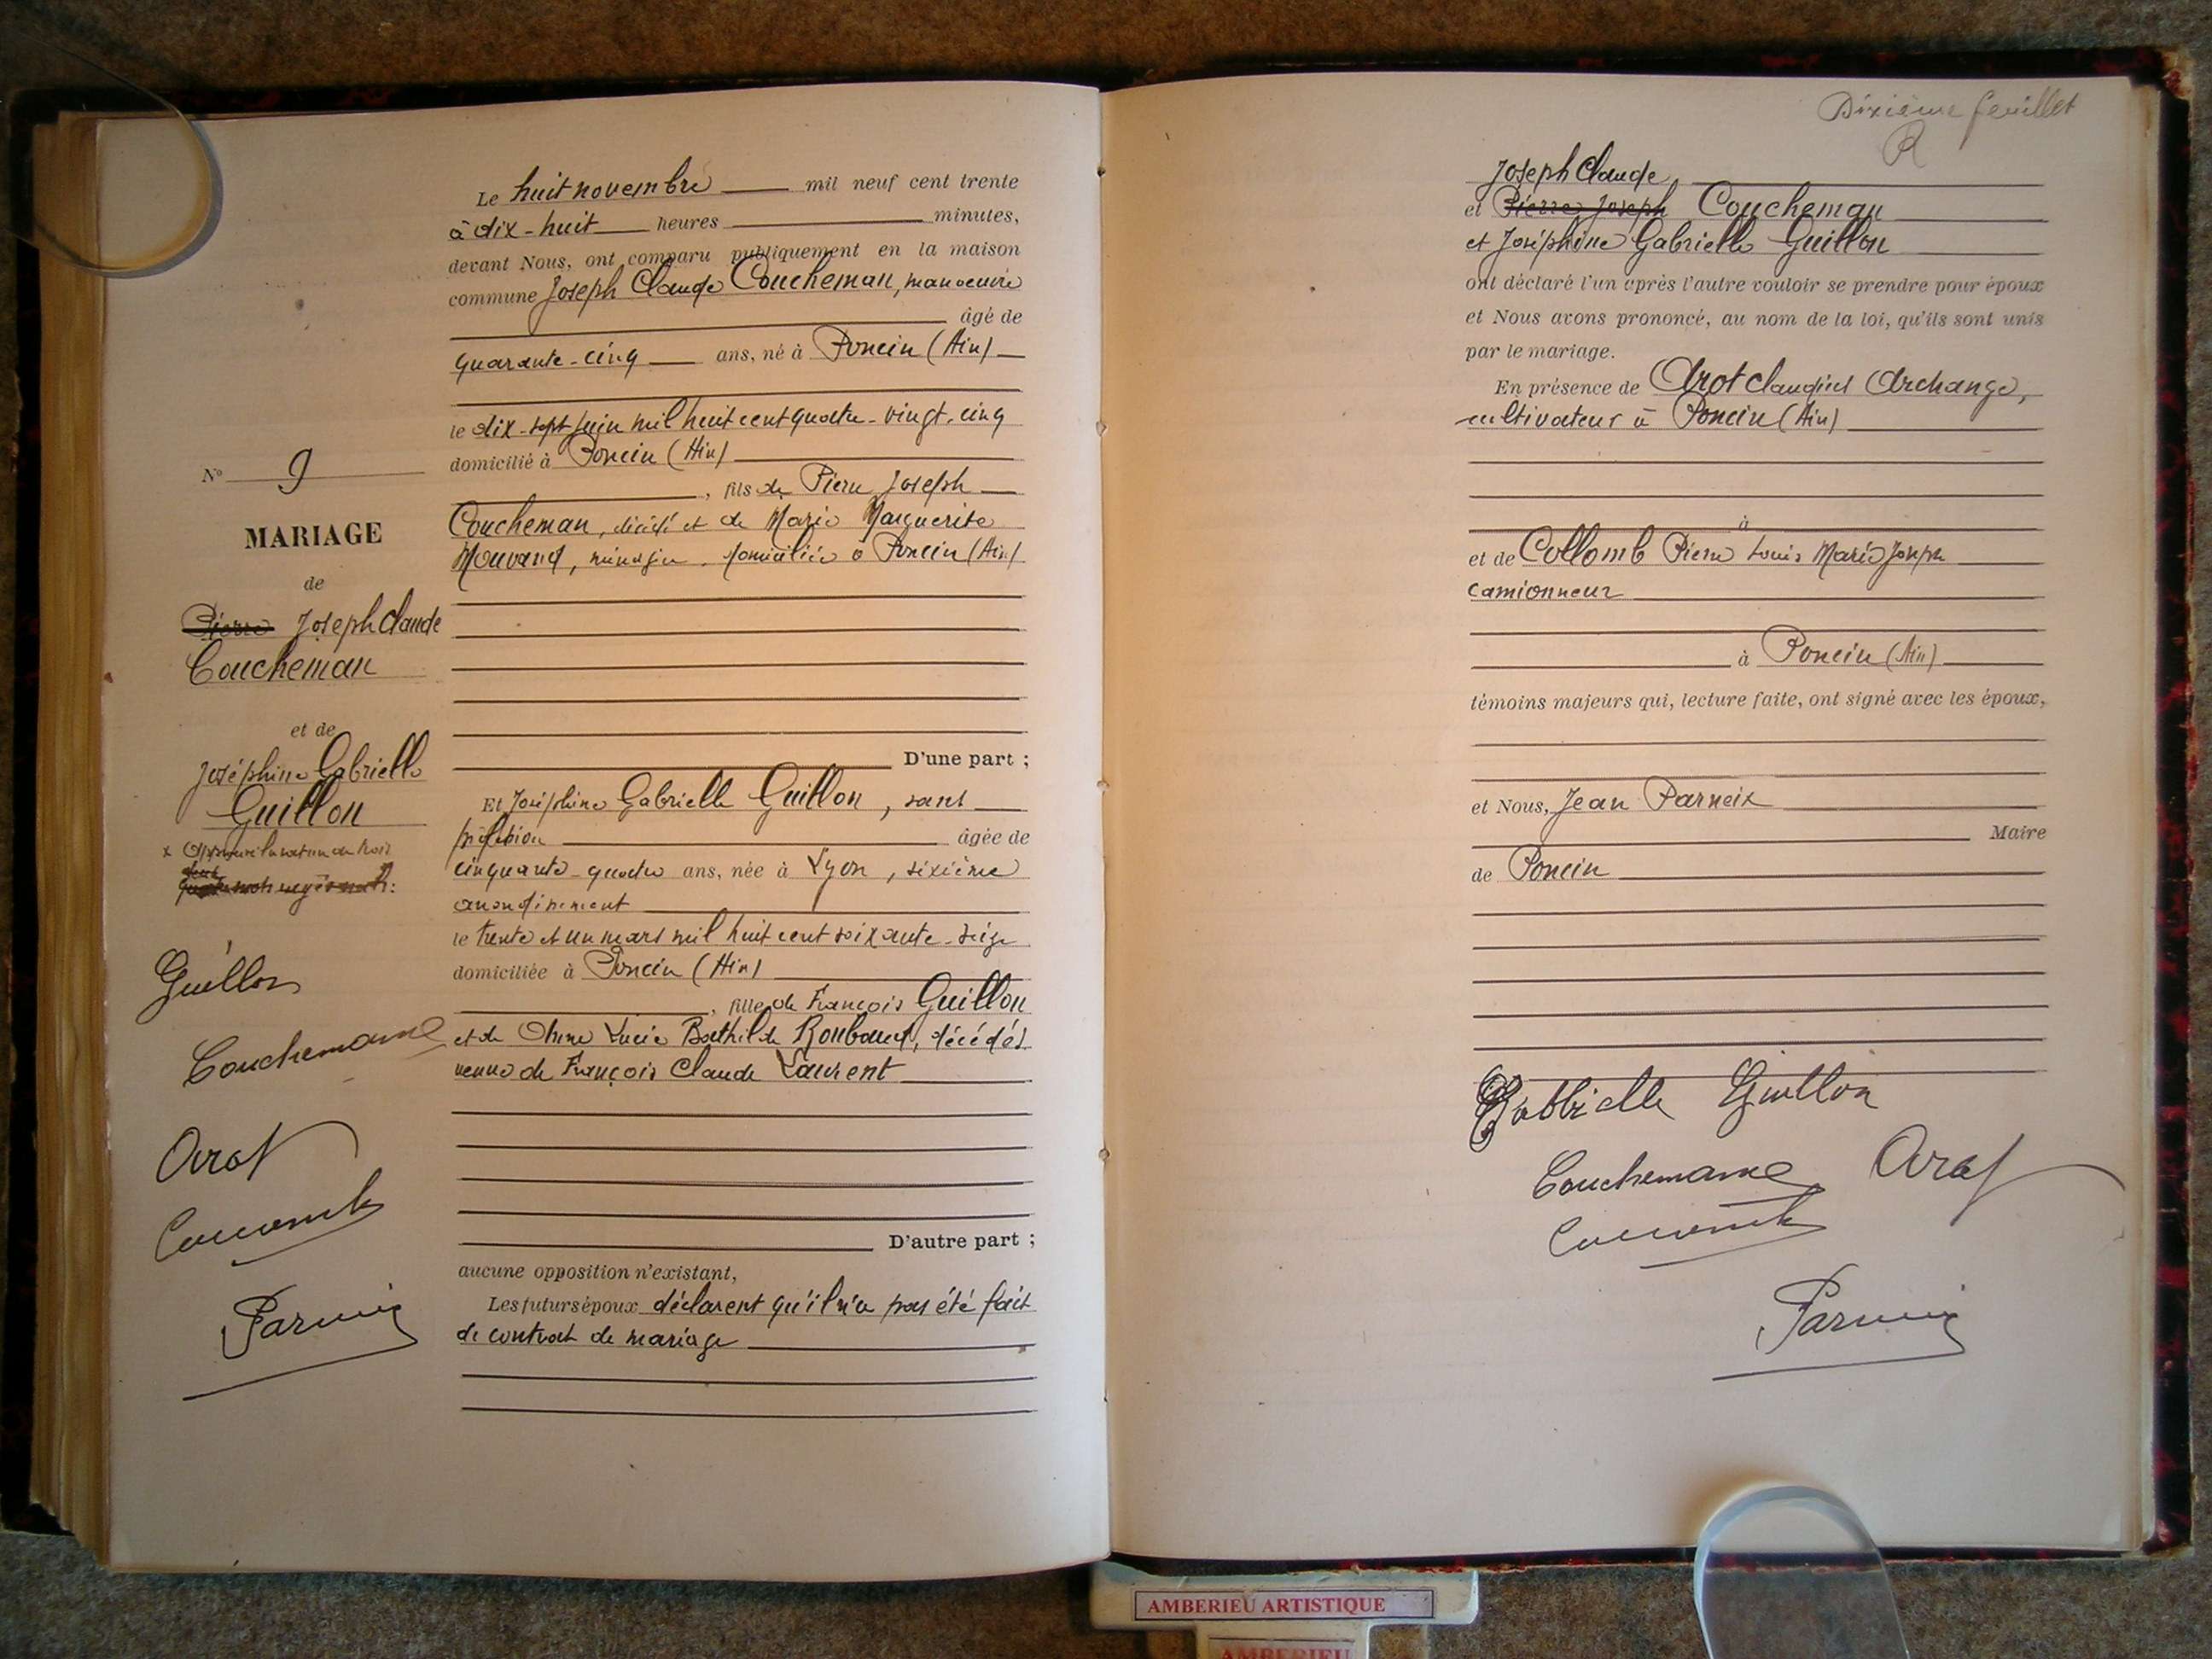 Le huit novembre mil neuf cent trente
à dix-huit heures minutes,
devant Nous, ont comparu publiquement en la maison
commune Joseph Claude Coucheman, manoeuvre
âgé de
quarante-cinq ans, né à Poncin (Ain)
le dix-sept juin mil huit cent quatre-vingt-cinq
domicilié à Poncin (Ain)
, fils de Pierre Joseph
Coucheman, décédé et de Marie Marguerite
Mouvand, ménagère, domiciliée à Poncin (Ain)
D'une part ;
Et Joséphine Gabrielle Guillon, sans
profession âgée de
cinquante-quatre ans, née à Lyon, sixième
arrondissement
le trente et un mars mil huit cent soixante-seize
domiciliée à Poncin (Ain)
, fille de François Guillon
et de Anne Lucie Bathilde Roubaud, décédés
veuve de François Claude Laurent
D'autre part ;
aucune opposition n'existant,
Les futurs époux déclarent qu'il n'a pas été fait
de contrat de mariage
N° 9
MARIAGE
de
Pierre Joseph Claude
Coucheman
et de
Joséphine Gabrielle
Guillon
x Approuvé la rature de trois
Guillon
Couchemanne
Arot
Collomb
Parneix
Dixième feuillet
R
Joseph Claude
et Pierre Joseph Coucheman
et Joséphine Gabrielle Guillon
ont déclaré l'un après l'autre vouloir se prendre pour époux
et Nous avons prononcé, au nom de la loi, qu'ils sont unis
par le mariage.
En présence de Arot Claudius Archange,
cultivateur à Poncin (Ain)
à
et de Collomb Pierre Louis Marie Joseph
camionneur
à Poncin (Ain)
témoins majeurs qui, lecture faite, ont signé avec les époux,
et Nous, Jean Parneix
Maire
de Poncin
Gabrielle Guillon
Couchemanne Arot
Collomb
Parneix
AMBERIEU ARTISTIQUE
AMBERIEU